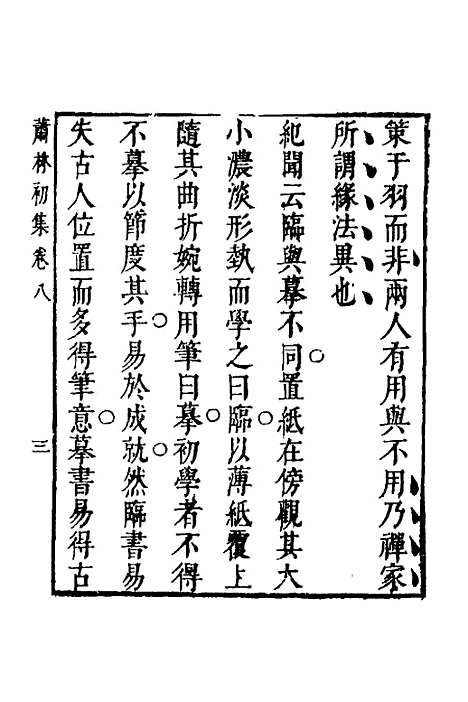 策于羽而非兩人有用與不用乃禪家
所謂緣法異也
紀聞云臨與摹不同置紙在傍觀其大
小濃淡形埶而學之曰臨以薄紙覆上
隨其曲折婉轉用筆曰摹初學者不得
不摹以節度其手易於成就然臨書易
失古人位置而多得筆意摹書易得古
蕭林初集 卷八 三